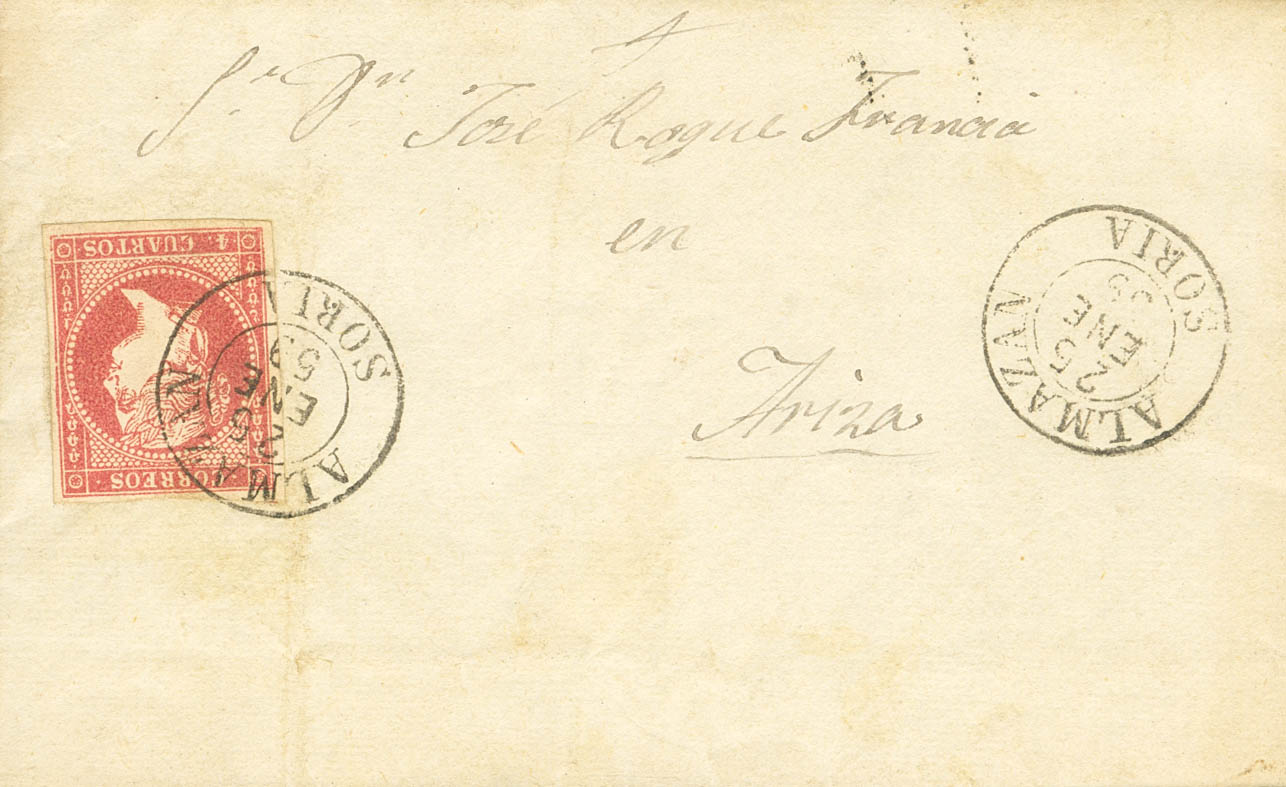 Sr. Dn. José Roque Francia
en
Ariza
4. CUARTOS
CORREOS
ALMAZAN
25
ENE
59
SORIA
ALMAZAN
25
ENE
SORIA